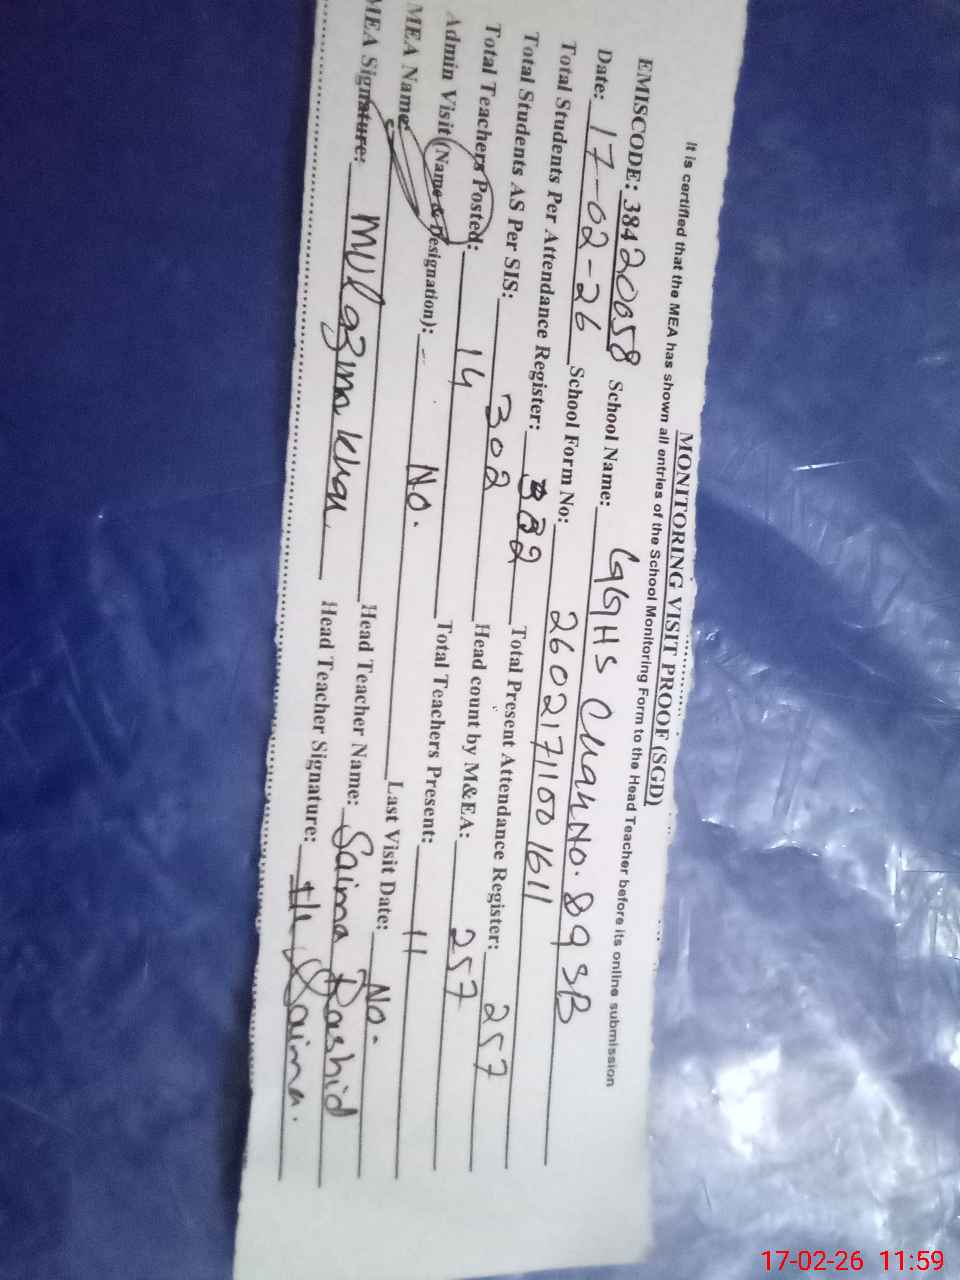 MONITORING VISIT PROOF (SGD)
It is certified that the MEA has shown all entries of the School Monitoring Form to the Head Teacher before its online submission
EMISCODE: 38420058 School Name: GGHS Chak No. 89 SB
Date: 17-02-26 School Form No: 26021711001611
Total Students Per Attendance Register: 302 Total Present Attendance Register: 257
Total Students AS Per SIS: 302 Head count by M&EA: 257
Total Teachers Posted: 14 Total Teachers Present: 11
Admin Visit (Name & Designation): - No. Last Visit Date: No.
MEA Name: Head Teacher Name: Saima Rashid
MEA Signature: Mulazim Khan Head Teacher Signature: Saima.
17-02-26 11:59